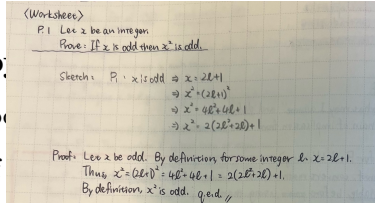 <Worksheet>
P.1 Let x be an integer.
Prove: If x is odd then x² is odd.
Sketch: P₁: x is odd ⇒ x = 2l+1
⇒ x² = (2l+1)²
⇒ x² = 4l²+4l+1
⇒ x² = 2(2l²+2l)+1
Proof: Let x be odd. By definition, for some integer l, x = 2l+1.
Thus, x² = (2l+1)² = 4l²+4l+1 = 2(2l²+2l)+1.
By definition, x² is odd. q.e.d. //